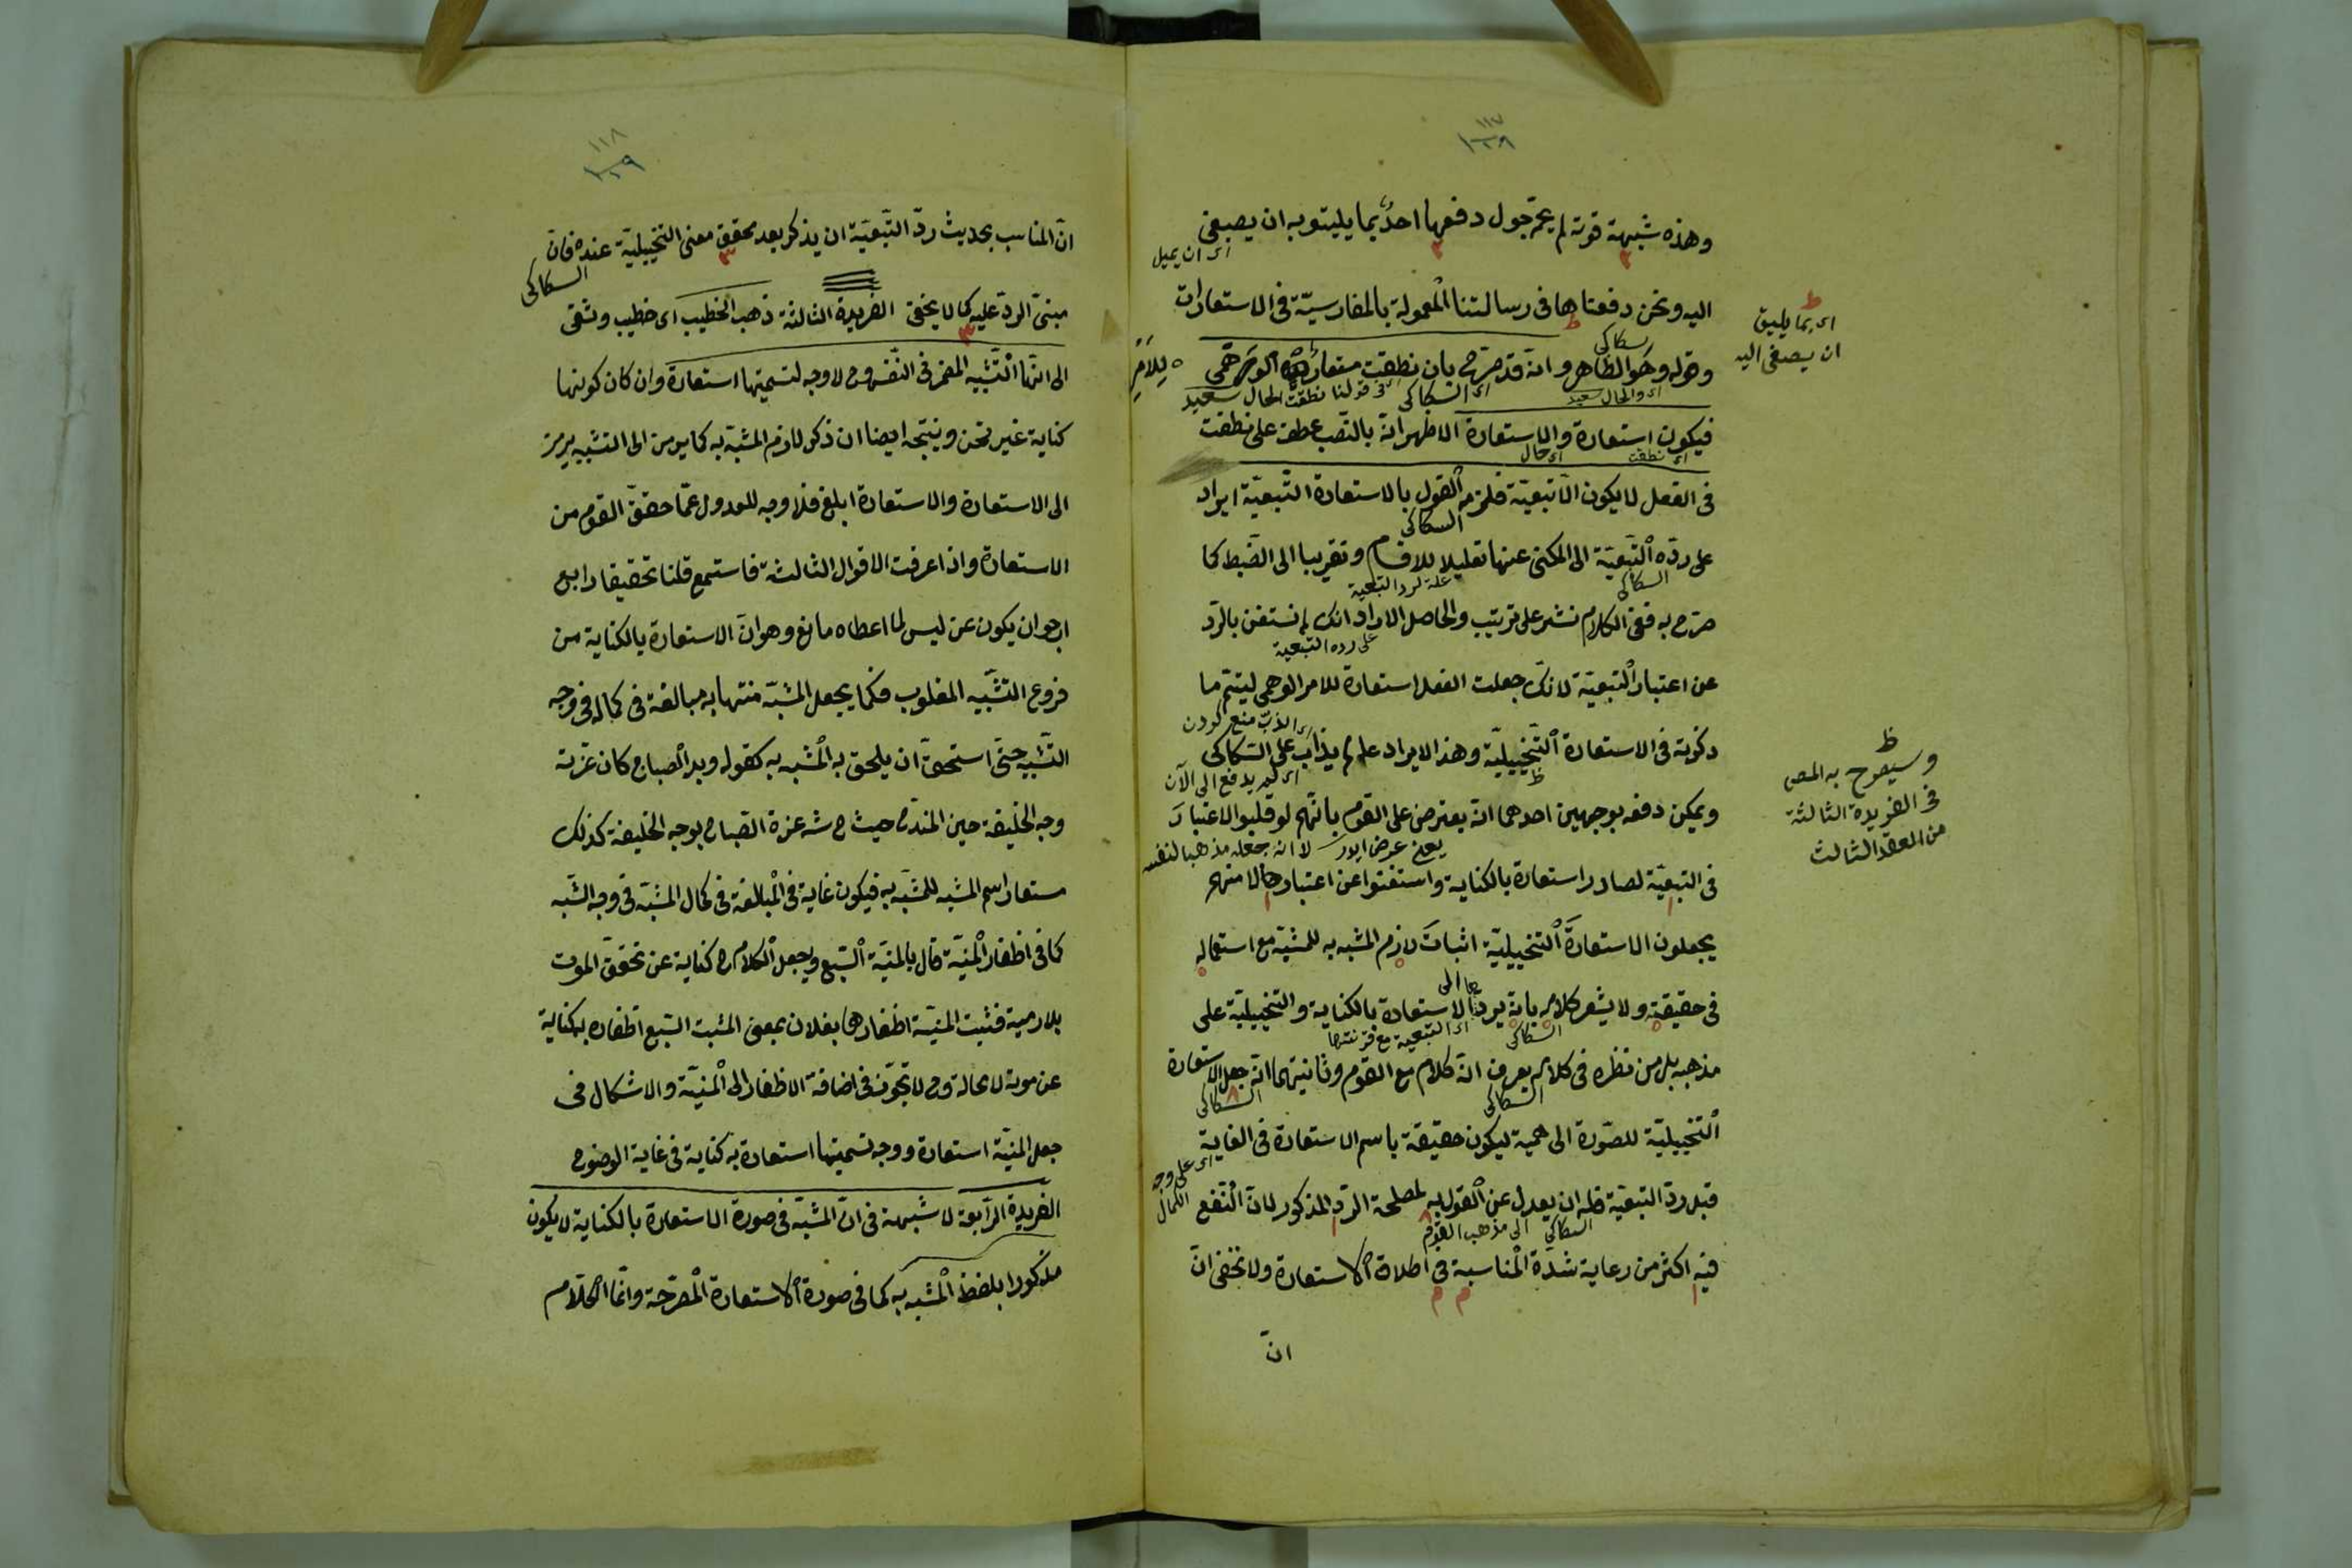 ١١٧
وهذه شبهة قوية لم يحم حول دفعها احد بما يليتو به ان يصغى
اى ان يميل
اليه ونحن دفعناها فى رسالتنا المعمولة بالفارسيّة فى الاستعارات
اى بما يليق
ان يصغى اليه
سكاكى
وقوله وهو الظاهر وانه قد صرّح بان نطقت مستعارة الوهمى
للامر
اى السكاكى
فى قولنا نطقت الحال
فيكون استعارة والاستعارة الاظهر انه بالنصب عطف على نطقت
اى نطقت
اى حال
فى الفعل لا يكون الّا تبعيّة فلزمه القول بالاستعارة التّبعيّة ايراد
السكاكى
على ردّه التّبعيّة الى المكنى عنها تقليلا للاقسام وتقريبا الى الضبط كما
السكاكى
علة لرد التبعية
صرّح به ففى الكلام نشر على ترتيب والحاصل الايراد انك لم تستغن بالرّد
على رده التبعية
عن اعتبار التبعيّة لانّك جعلت الفعل استعارة للامر الوهمى ليتمّ ما
اى الذبّ منع كردن
ذكرته فى الاستعارة التّخييليّة وهذا الايراد علم لم يذابّ على السّكاكى
اى لم يدفع الى الآن
وسيصرح به المص
فى الفريدة الثالثة
من العقد الثالث
ويمكن دفعه بوجهين احدهما انّه يعترض على القوم بانّهم لو قلبوا الاعتبار
لا انه يجعله مذهبا لنفسه
فى التبعيّة لصار استعارة بالكناية واستغنوا عن اعتبار حالا منهم
يجعلون الاستعارة التخييليّة اثبات لازم المشبه به للمشبّه مع استعماله
فى حقيقته ولا يشعر كلامه بانه يردّ الاستعارة بالكناية والتخييليّة على
السكاكى
اى التبعية مع قرينتها
مذهبه بل من نظر فى كلامه يعرف انّه كلام مع القوم وثانيهما انّه جعل الاستعارة
السكاكى
السكاكى
التخييليّة للصّورة الوهمية ليكون حقيقة باسم الاستعارة فى الغاية
اى على وجه
الكمال
قبل ردّ التبعيّة فله ان يعدل عن القول به لمصلحة الردّ المذكور لانّ النّفع
السكاكى
الى مذهب القوم
فيه اكثر من رعاية شدّة المناسبة فى اطلاق الاستعارة ولا يخفى انّ
انّ
١١٨
انّ المناسب بحديث ردّ التّبعيّة ان يذكر بعد تحقق معنى التّخييليّة عنده فانّ
السكاكى
مبنى الردّ عليه كما لا يخفى الفريدة الثالثة ذهب الخطيب اى خطيب دمشقى
الى انّها التّشبيه المضمر فى النّفس وح لا وجه لتسميتها استعارة وان كان كونها
كناية غير مخفى ويتّجه ايضا ان ذكر لازم المشبّه به كما يرمز الى التشبيه يرمز
الى الاستعارة والاستعارة ابلغ فلا وجه للعدول عمّا حقّق القوم من
الاستعارة واذا عرفت الاقوال الثالثة فاستمع قلنا تحقيقا رابع
ارجو ان يكون عن ليس لما اعطاه مانع وهو انّ الاستعارة بالكناية من
فروع التّشبيه المقلوب فكما يجعل المشبّه منتهابه مبالغة فى كماله فى وجه
التّشبيه حتّى استحقّ ان يلحق به المشبه به كقوله وبدا الصباح كان غرّته
وجه الخليفة حين المتدح حيث ح شه غرة الصّباح بوجه الخليفة كذلك
مستعار اسم المشبه للمشبّه به فيكون غاية فى المبالغة فى كمال المشبّه فى وجه الشّبه
كما فى اظفار المنيّة قال بالمنيّة السّبع ويجعل الكلام ح كناية عن تحقّق الموت
بلا رمية فثبت المنيّة اظفارها بفلان بمعنى المثبت السّبع اظفاره به كناية
عن موته لا محالة وح لا تجوّز فى اضافة الاظفار الى المنيّة والاشكال فى
جعل المنيّة استعارة ووجه تسميتها استعارة به كناية فى غاية الوضوح
الفريدة الرّابعة لا شبهة فى انّ المشبّه فى صورة الاستعارة بالكناية لا يكون
مذكورا بلفظ المشبه به كما فى صورة الاستعارة المصرّحة وانّما الكلام